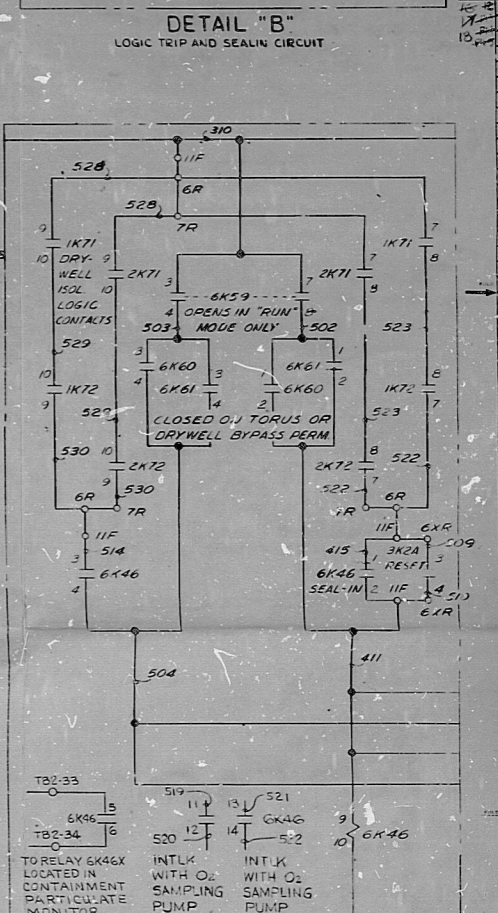 DETAIL "B"
LOGIC TRIP AND SEALIN CIRCUIT
18
310
11F
528
6R
528
7R
9
1K71
10
DRY-
WELL
ISOL
LOGIC
CONTACTS
9
2K71
10
3
6K59
7
4
8
OPENS IN "RUN"
MODE ONLY
503
502
7
2K71
8
7
1K71
8
529
523
3
6K60
4
3
6K61
4
1
6K61
2
1
6K60
2
10
1K72
9
8
1K72
7
529
523
CLOSED ON TORUS OR
DRYWELL BYPASS PERM.
530
10
2K72
9
530
8
2K72
7
522
522
6R
7R
7R
6R
11F
514
3
6K46
4
11F
6XR
415
1
3K2A
509
6K46
RESET
3
SEAL-IN
2
11F
4
510
6XR
504
411
TB2-33
5
6K46
6
TB2-34
TO RELAY 6K46X
LOCATED IN
CONTAINMENT
PARTICULATE
MONITOR
519
11
12
520
INTLK
WITH O2
SAMPLING
PUMP
13
521
6K46
14
522
INTLK
WITH O2
SAMPLING
PUMP
9
6K46
10